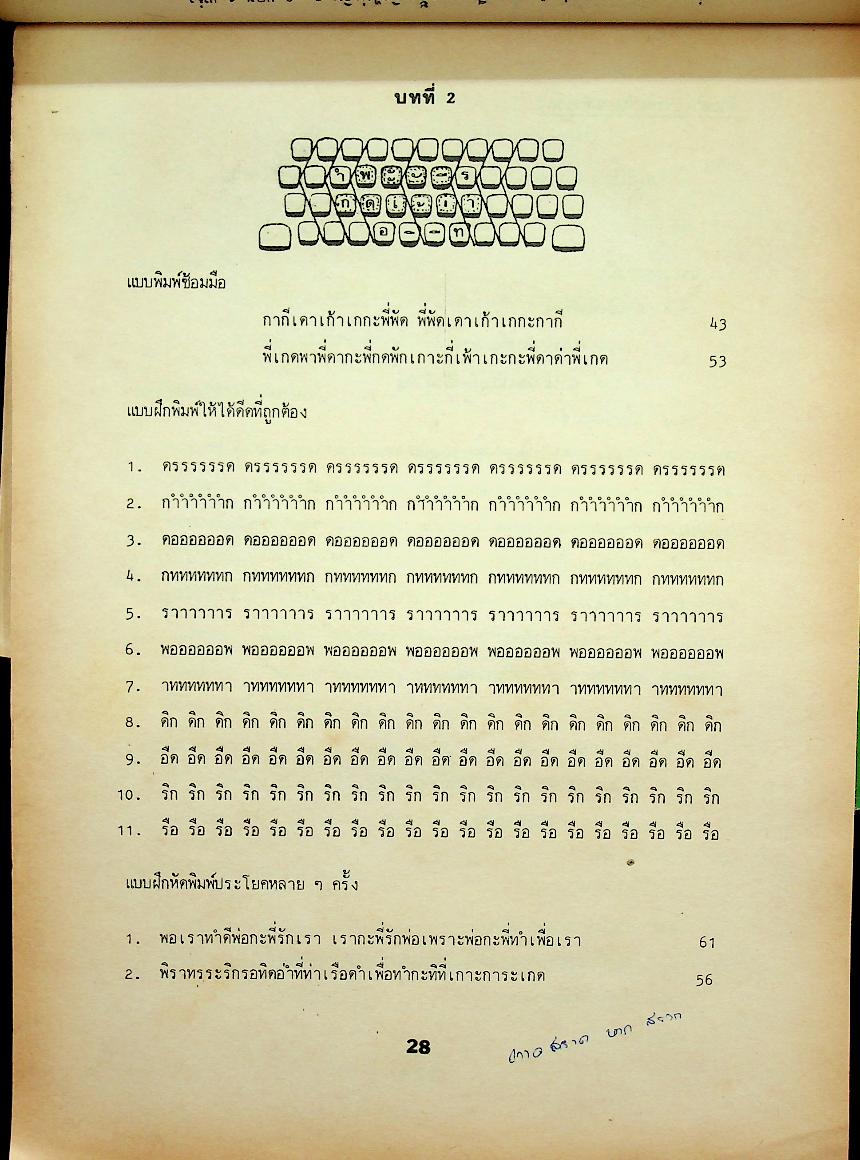 บทที่ 2
ำ พ ะ ั ี ร
ก ด เ ้ ่ า
อ ิ ื ท
แบบพิมพ์ซ้อมมือ
กากีเดาเก้าเกกะพี่พัด พี่พัดเดาเก้าเกกะกากี 43
พี่เกดพาพี่ดากะพี่กดพักเกาะกี่เพ้าเกะกะพี่ดาด่าพี่เกด 53
แบบฝึกพิมพ์ให้ได้ดีดที่ถูกต้อง
1. ดรรรรรรด ดรรรรรรด ดรรรรรรด ดรรรรรรด ดรรรรรรด ดรรรรรรด ดรรรรรรด
2. กำำำำำำก กำำำำำำก กำำำำำำก กำำำำำำก กำำำำำำก กำำำำำำก กำำำำำำก
3. ดออออออด ดออออออด ดออออออด ดออออออด ดออออออด ดออออออด ดออออออด
4. กททททททก กททททททก กททททททก กททททททก กททททททก กททททททก กททททททก
5. ราาาาาาร ราาาาาาร ราาาาาาร ราาาาาาร ราาาาาาร ราาาาาาร ราาาาาาร
6. พออออออพ พออออออพ พออออออพ พออออออพ พออออออพ พออออออพ พออออออพ
7. าททททททา าททททททา าททททททา าททททททา าททททททา าททททททา าททททททา
8. ดิก ดิก ดิก ดิก ดิก ดิก ดิก ดิก ดิก ดิก ดิก ดิก ดิก ดิก ดิก ดิก ดิก ดิก ดิก ดิก ดิก
9. อืด อืด อืด อืด อืด อืด อืด อืด อืด อืด อืด อืด อืด อืด อืด อืด อืด อืด อืด อืด อืด
10. ริก ริก ริก ริก ริก ริก ริก ริก ริก ริก ริก ริก ริก ริก ริก ริก ริก ริก ริก ริก ริก
11. รือ รือ รือ รือ รือ รือ รือ รือ รือ รือ รือ รือ รือ รือ รือ รือ รือ รือ รือ รือ รือ
แบบฝึกหัดพิมพ์ประโยคหลาย ๆ ครั้ง
1. พอเราทำดีพ่อกะพี่รักเรา เรากะพี่รักพ่อเพราะพ่อกะพี่ทำเพื่อเรา 61
2. พิราทรระริกรอทิดอ่ำที่ท่าเรือดำเพื่อทำกะทิที่เกาะการะเกด 56
28